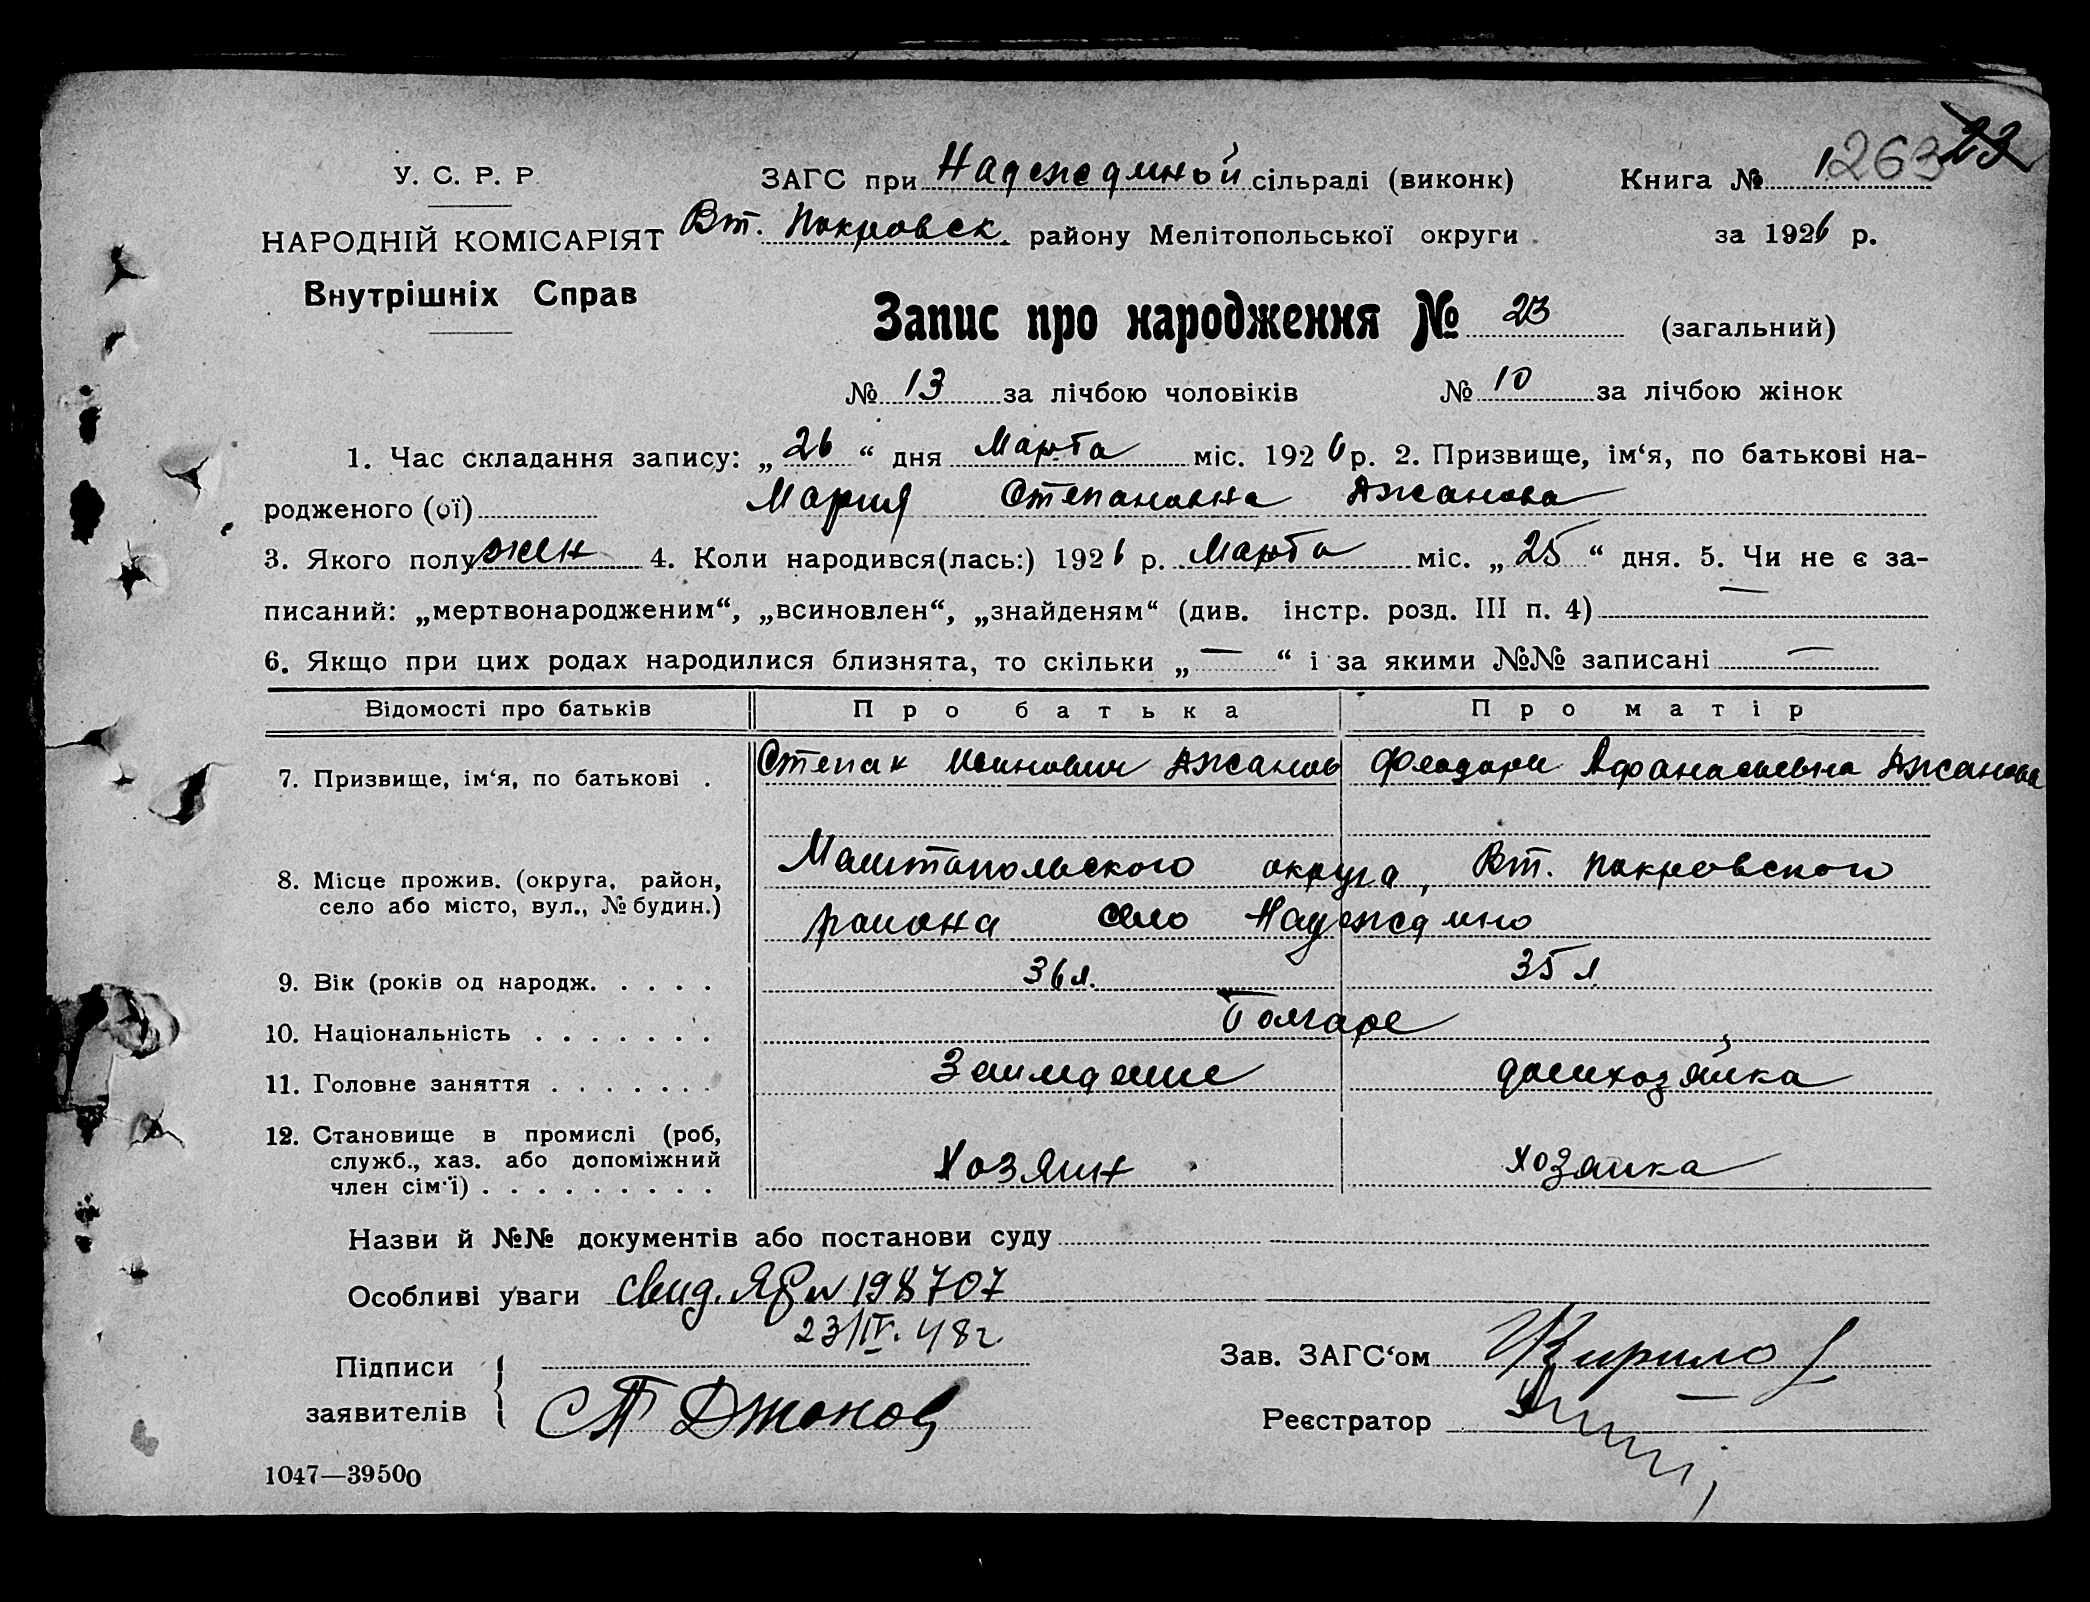 У. С. Р. Р.
НАРОДНІЙ КОМІСАРІЯТ
Внутрішніх Справ
ЗАГС при Надеждиной сільраді (виконк)
Книга № 1 263 23
Вт. Покровск. району Мелітопольської округи
за 1926 р.
Запис про народження № 23 (загальний)
№ 13 за лічбою чоловіків № 10 за лічбою жінок
1. Час складання запису: „26“ дня Марта міс. 1926 р. 2. Призвище, ім‘я, по батькові на-
родженого (ої) Мария Степановна Ажанова
3. Якого полу жен 4. Коли народився(лась:) 1926 р. Марта міс. „25“ дня. 5. Чи не є за-
писаний: „мертвонародженим“, „всиновлен“, „знайденям“ (див. інстр. розд. III п. 4) —
6. Якщо при цих родах народилися близнята, то скільки „—“ і за якими №№ записані —
Відомості про батьків Про батька Про матір
7. Призвище, ім‘я, по батькові . Степан Ажанов Феодора Афанасьевна Ажанова
8. Місце прожив. (округа, район,
село або місто, вул., № будин.)
округа, Вт. Покровского
района село Надеждино
9. Вік (років од народж. . . . . 36 л. 35 л
10. Національність . . . . . . . Болгаре
11. Головне заняття . . . . . . . домхозяйка
12. Становище в промислі (роб,
служб., хаз. або допоміжний
член сім‘ї) . . . . . . . . . Хозяин хозяика
Назви й №№ документів або постанови суду
Особливі уваги свид. ЯР № 198707
23/IV. 48 г
Підписи
заявителів
Ст Джонов
Зав. ЗАГС‘ом
Реєстратор
1047—39500